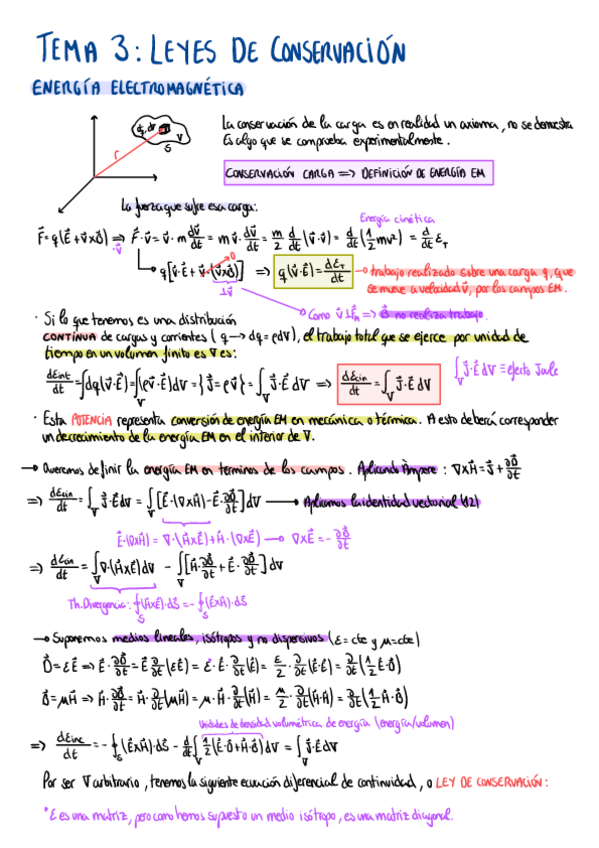 TEMA 3: LEYES DE CONSERVACIÓN
ENERGÍA ELECTROMAGNÉTICA
La conservación de la carga es en realidad un axioma, no se demuestra
Es algo que se comprueba experimentalmente.
dq, dv
V
S
r
CONSERVACIÓN CARGA => DEFINICIÓN DE ENERGÍA EM
La fuerza que sufre esa carga:
Energía cinética
F⃗ = q(E⃗ + v⃗×B⃗) => F⃗·v⃗ = v⃗·m dv⃗/dt = m v⃗·dv⃗/dt = m/2 d/dt (v⃗·v⃗) = d/dt (1/2 mv²) = d/dt ℰ_T
·v⃗
q[v⃗·E⃗ + v⃗·(v⃗×B⃗)] => q(v⃗·E⃗) = dℰ_T/dt → trabajo realizado sobre una carga q, que
0
se mueve a velocidad v⃗, por los campos EM.
⊥v⃗
Como v⃗⊥F⃗m => B⃗ no realiza trabajo.
· Si lo que tenemos es una distribución
CONTÍNUA de cargas y corrientes (q → dq = ρdV), el trabajo total que se ejerce por unidad de
tiempo en un volumen finito es V es:
dℰint/dt = ∫dq(v⃗·E⃗) = ∫_V (ρv⃗·E⃗)dV = {J⃗ = ρv⃗} = ∫_V J⃗·E⃗ dV => dℰcin/dt = ∫_V J⃗·E⃗ dV
∫_V J⃗·E⃗ dV ≡ efecto Joule
· Esta POTENCIA representa conversión de energía EM en mecánica o térmica. A esto deberá corresponder
un decrecimiento de la energía EM en el interior de V.
→ Queremos definir la energía EM en terminos de los campos. Aplicando Ampere: ∇×H⃗ = J⃗ + ∂D⃗/∂t
=> dℰcin/dt = ∫_V J⃗·E⃗ dV = ∫_V [E⃗·(∇×H⃗) - E⃗·∂D⃗/∂t] dV → Aplicamos la identidad vectorial (12)
E⃗·(∇×H⃗) = ∇·(H⃗×E⃗) + H⃗·(∇×E⃗) → ∇×E⃗ = -∂B⃗/∂t
=> dℰcin/dt = ∫_V ∇·(H⃗×E⃗)dV - ∫_V [H⃗·∂B⃗/∂t + E⃗·∂D⃗/∂t] dV
Th. Divergencia: ∮_S (H⃗×E⃗)·dS⃗ = -∮_S (E⃗×H⃗)·dS⃗
→ Suponemos medios lineales, isótropos y no dispersivos (ε = cte y μ = cte)
D⃗ = εE⃗ => E⃗·∂D⃗/∂t = E⃗ ∂/∂t (εE⃗) = ε·E⃗·∂/∂t (E⃗) = ε/2·∂/∂t (E⃗·E⃗) = ∂/∂t (1/2 E⃗·D⃗)
B⃗ = μH⃗ => H⃗·∂B⃗/∂t = H⃗·∂/∂t (μH⃗) = μ·H⃗·∂/∂t (H⃗) = μ/2·∂/∂t (H⃗·H⃗) = ∂/∂t (1/2 H⃗·B⃗)
Unidades de densidad volumétrica de energía (energía/volumen)
=> dℰinc/dt = -∮_S (E⃗×H⃗)·dS⃗ - d/dt ∫_V 1/2 (E⃗·D⃗ + H⃗·B⃗)dV = ∫_V J⃗·E⃗ dV
Por ser V arbitrario, tenemos la siguiente ecuación diferencial de continuidad, o LEY DE CONSERVACIÓN:
*ε es una matriz, pero como hemos supuesto un medio isótropo, es una matriz diagonal.